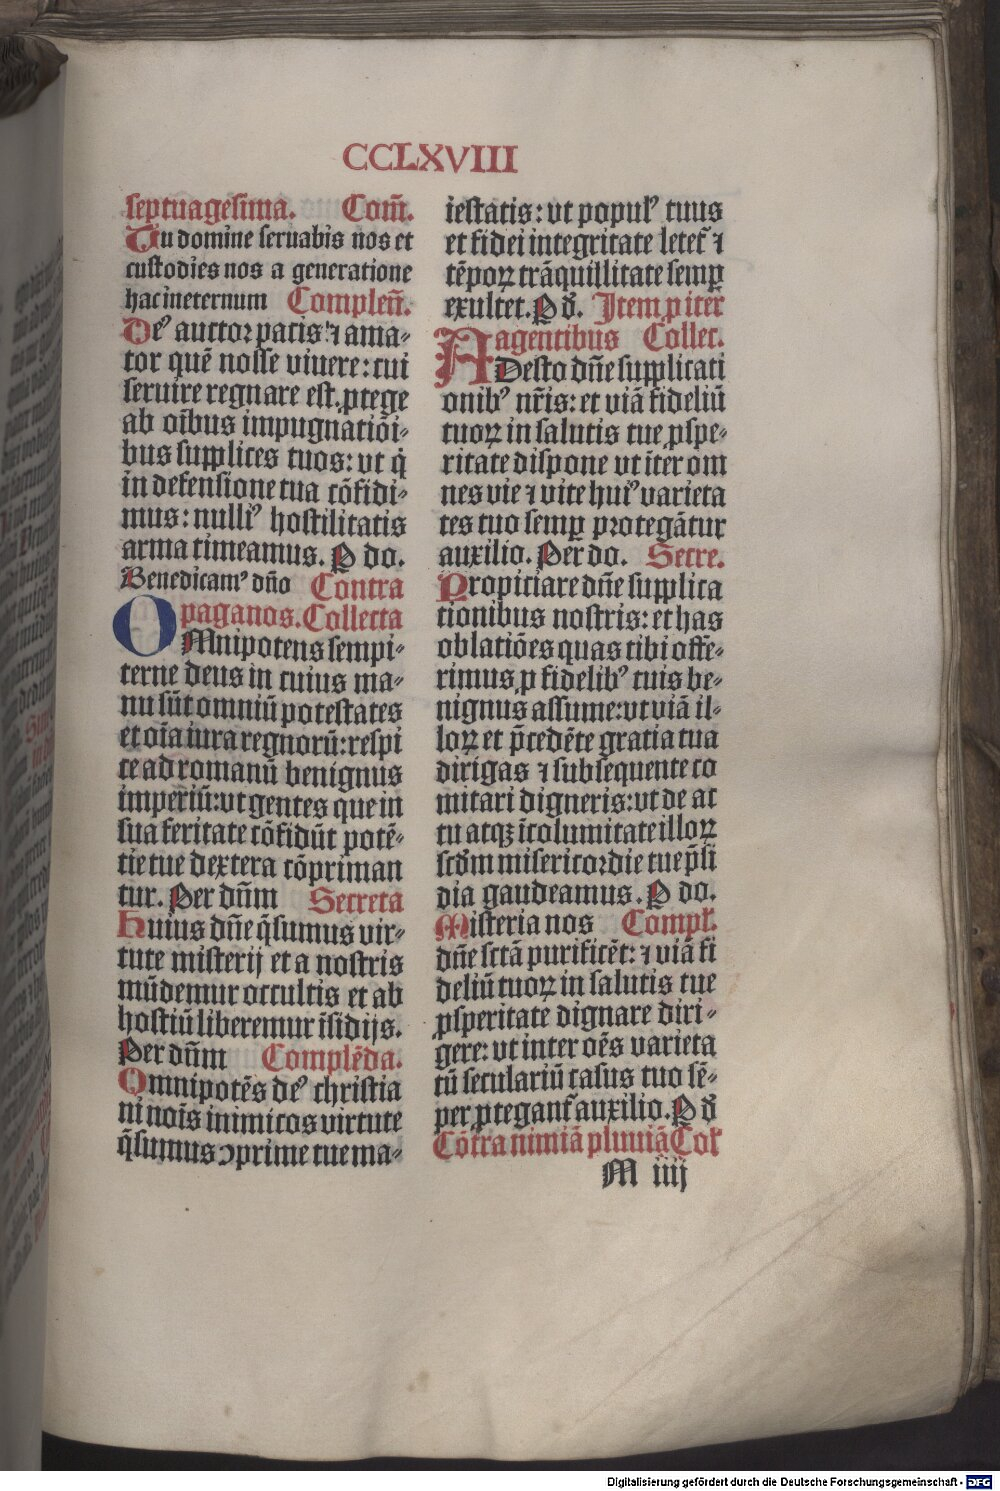 CCLXVIII
septuagesima. Com̄.
Tu domine seruabis nos et
custodies nos a generatione
hac ineternum Compleñ.
Deꝰ auctor pacis ⁊ ama⸗
tor quē nosse viuere: cui
seruire regnare est. ꝓtege
ab oībus impugnatiōi⸗
bus supplices tuos: vt q̇
in defensione tua cōfidi⸗
mus: nulliꝰ hostilitatis
arma timeamus. P do.
Benedicamꝰ dño Contra
paganos. Collecta
OMnipotens sempi⸗
terne deus in cuius ma⸗
nu sūt omniū potestates
et oīa iura regnorū: respi
ce ad romanū benignus
imperiū: vt gentes que in
sua feritate cōfidūt potē⸗
tie tue dextera cōpriman
tur. Per dn̄m Secreta
Huius dn̄e q̄sumus vir⸗
tute misterij et a nostris
mūdemur occultis et ab
hostiū liberemur īsidijs.
Per dn̄m Complēda.
Omnipotēs deꝰ christia
ni noīs inimicos virtute
q̄sumus ↄprime tue ma⸗
iestatis: vt populꝰ tuus
et fidei integritate letet̄ ⁊
tēporꝝ trāquillitate semꝑ
exultet. P d̄. Item ꝓ iter
agentibus Collec.
ADesto dn̄e supplicati
onibꝰ nr̄is: et viā fideliū
tuorꝝ in salutis tue ꝓspe⸗
ritate dispone vt īter om
nes vie ⁊ vite huiꝰ varieta
tes tuo semꝑ protegātur
auxilio. Per do. Secre.
Propiciare dn̄e supplica
tionibus nostris: et has
oblatiōes quas tibi offe⸗
rimus ꝓ fidelibꝰ tuis be⸗
nignus assume: vt viā il⸗
lorꝝ et p̄cedēte gratia tua
dirigas ⁊ subsequente co
mitari digneris: vt de ac
tu atqꝫ īcolumitate illorꝝ
scd̄m misericordie tue p̄si
dia gaudeamus. P do.
Misteria nos Compl̄.
dn̄e sctā purificēt: ⁊ viā fi
deliū tuorꝝ in salutis tue
ꝓsperitate dignare diri⸗
gere: vt inter oēs varieta
tū seculariū casus tuo sē⸗
per ꝓtegant̄ auxilio. P d̄
Cōtra nimiā pluuiā Col̄
M iiij
Digitalisierung gefördert durch die Deutsche Forschungsgemeinschaft - DFG